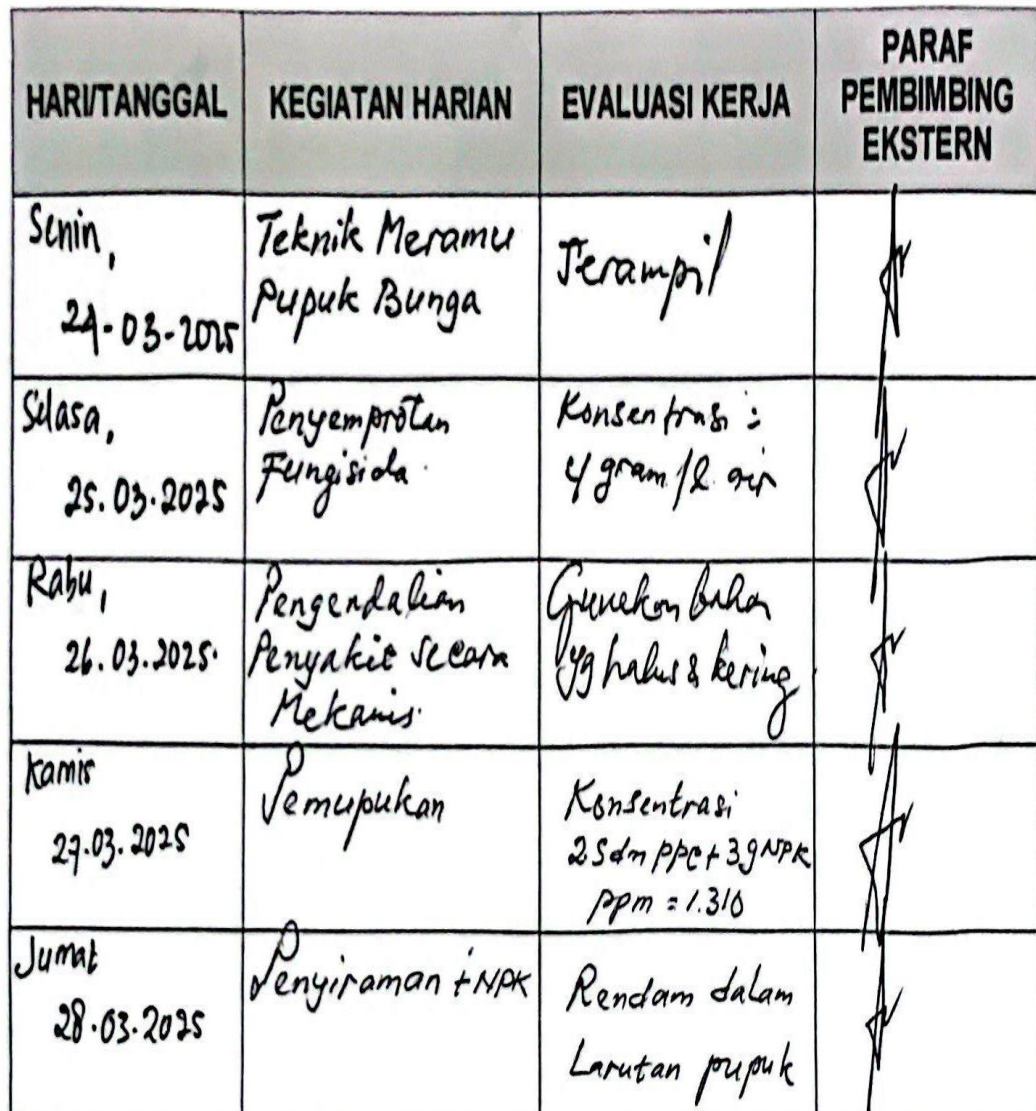 HARI/TANGGAL
KEGIATAN HARIAN
EVALUASI KERJA
PARAF
PEMBIMBING
EKSTERN
Senin,
24-03-2025
Teknik Meramu
Pupuk Bunga
Terampil
Selasa,
25.03.2025
Penyemprotan
Fungisida.
Konsentrasi =
4 gram/l. air
Rabu,
26.03.2025.
Pengendalian
Penyakit secara
Mekanis.
Gunakan bahan
yg halus & kering
Kamis
27.03.2025
Pemupukan
Konsentrasi
2 Sdm PPC + 3g NPK
ppm = 1.310
Jumat
28.03.2025
Penyiraman + NPK
Rendam dalam
Larutan pupuk